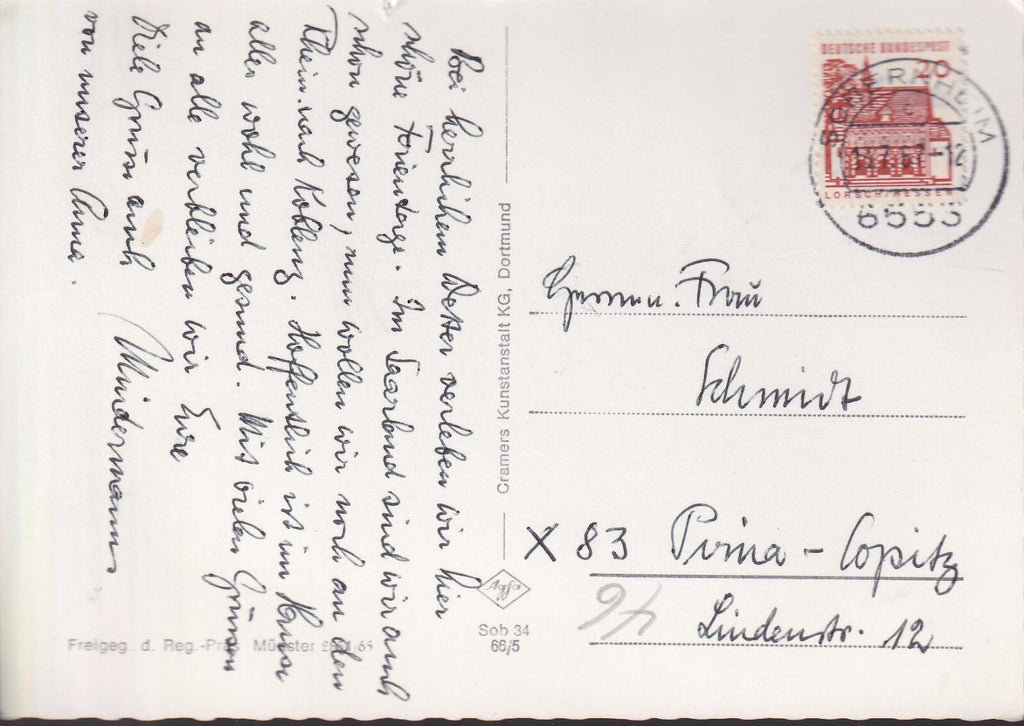 Bei herrlichem Wetter verleben wir hier
schöne Ferientage. Im Saarland sind wir auch
schon gewesen, nun wollen wir noch an den
Rhein nach Koblenz. Hoffentlich ist im Hause
alles wohl und gesund. Mit vielen Grüssen
an alle verbleiben wir Eure
Mindermanns
Viele Grüsse auch
von unserer Anna.
Cramers Kunstanstalt KG, Dortmund
Agfa
Sob 34
66/5
Freigeg. d. Reg.-Präs Münster
DEUTSCHE BUNDESPOST
20
LORSCH/HESSEN
SOBERNHEIM
-12
6553
Frau
Schmidt
X 83 Pirna - Copitz
Lindenstr. 12